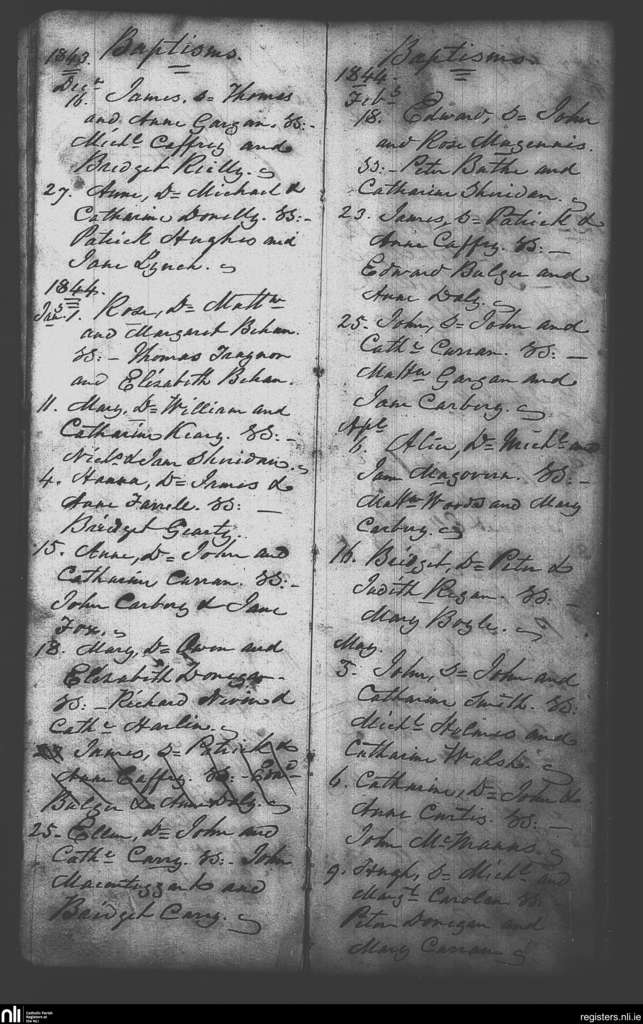 1843. Baptisms.
Decr
16. James, s= Thomas
and Anne Gargan. SS:-
Michl Caffrey and
Bridget Reilly.
27. Anne, D= Michael &
Catharine Donelly. SS:-
Patrick Hughes and
Jane Lynch.
1844.
Jany 1. Rose, D= Mattw
and Margaret Behan.
SS:- Thomas
and Elizabeth Behan.
11. Mary, D= William and
Catharine Keary. SS:-
Nichs & Jane Sheridan.
4. Hanna, D= James &
Anne Farrell. SS: -
Bridget Gearty.
15. Anne, D= John and
Catharine Curran. SS:-
John Carbery & Jane
Fox.
18. Mary, D= Owen and
Elizabeth Donegan.
SS: - Richard Nevin &
Cathe Harlin.
James, s= Patrick &
Anne Caffrey. SS:- Edwd
Bulger & Anne Daly.
25. Ellen, D= John and
Cathe Carry. SS:- John
and
Bridget Carry.
Baptisms
1844.
Feby
18. Edward, s= John
and Rose Magennis.
SS:- Peter Burke and
Catharine Sheridan.
23. James, s= Patrick &
Anne Caffrey. SS: -
Edward Bulger and
Anne Daly.
25. John, s= John and
Cathe Curran. SS: -
Mattw Gargan and
Jane Carbery.
Apl
6. Alice, D= Michl and
Jane Magovern. SS: -
Mattw Woods and Mary
Carbery.
16. Bridget, D= Peter &
Judith Regan. SS: -
Mary Boyle.
May.
5. John, s= John and
Catharine Smith. SS:
Michl Holmes and
Catharine Walsh.
6. Catharine, D= John &
Anne Curtis. SS: -
John McManus.
9. Hugh, s= Michl and
Margt Carolan SS:
Peter Donegan and
Mary Curran
nli
Catholic Parish
Registers at
the NLI
registers.nli.ie